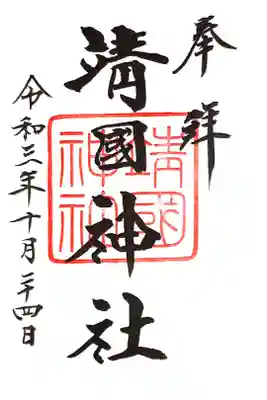 奉拝
靖國神社
靖國神社
令和三年十月二十四日